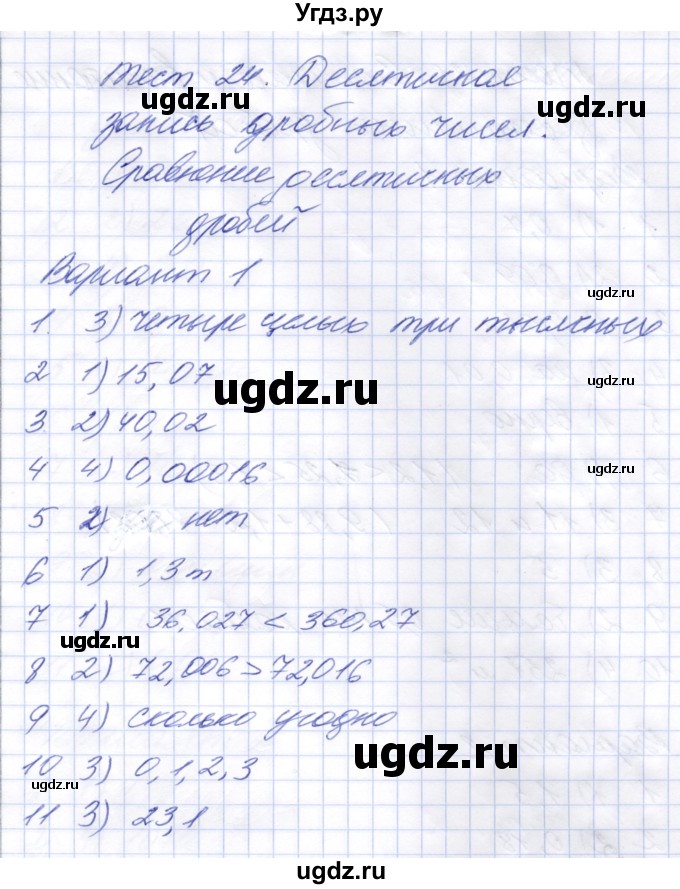 Угдз.ру
Тест 24. Десятичная
запись дробных чисел.
Сравнение десятичных
дробей
Вариант 1
1. 3) четыре целых три тысячных
2 1) 15,07
3 2) 40,02
4 4) 0,00016
5 2) нет
6 1) 1,3 т
7 1) 36,027 < 360,27
8 2) 72,006 > 72,016
9 4) сколько угодно
10 3) 0, 1, 2, 3
11 3) 23,1
ugdz.ru
ugdz.ru
ugdz.ru
ugdz.ru
ugdz.ru
ugdz.ru
ugdz.ru
ugdz.ru
ugdz.ru
ugdz.ru
ugdz.ru
ugdz.ru